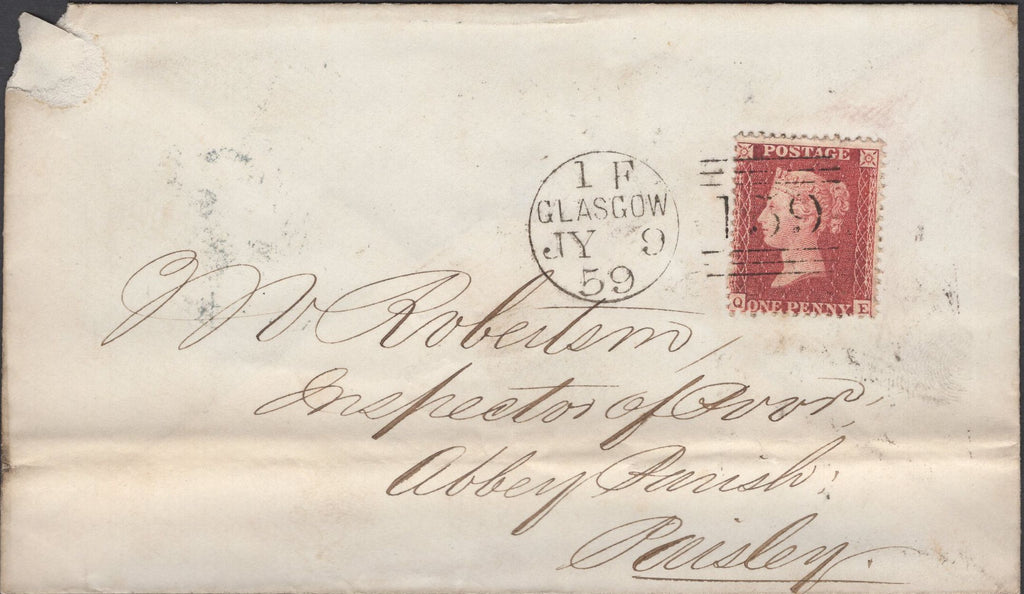 POSTAGE
1 F
GLASGOW
JY 9
59
159
Q ONE PENNY E
Mr Robertson,
Inspector of Poor,
Abbey Parish,
Paisley.